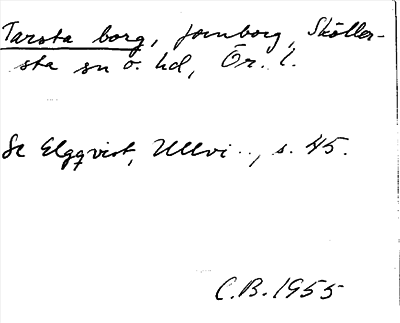 Tarsta borg, fornborg, Sköller-
sta sn o. hd, Ör. l.
Se Elgqvist, Ullvi.., s. 45.
C.B. 1955